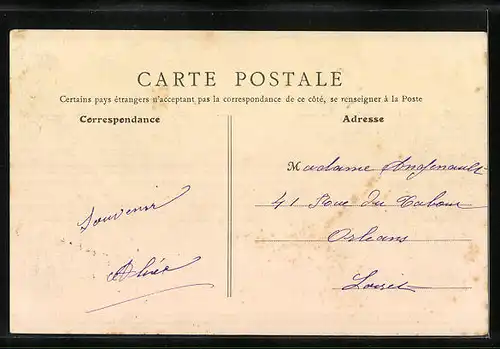 CARTE POSTALE
Certains pays étrangers n'acceptant pas la correspondance de ce côté, se renseigner à la Poste
Correspondance
Adresse
Madame
41 Rue du Tabour
Orléans
Loiret
Souvenir